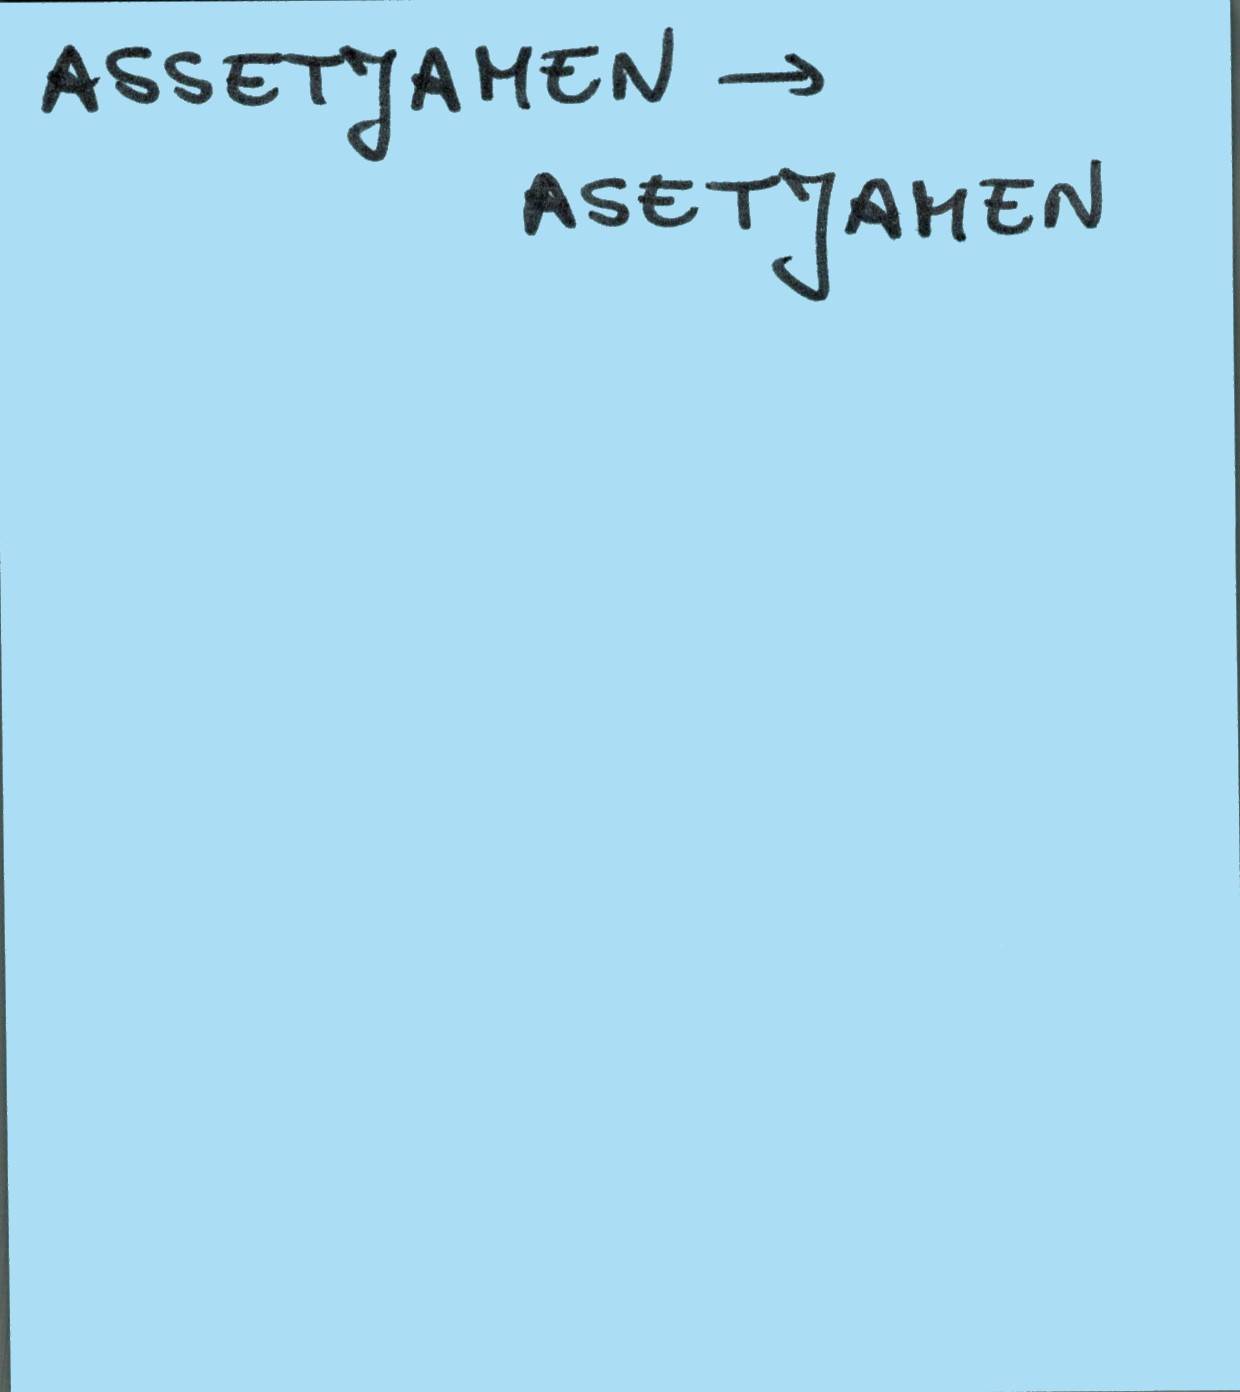 ASSETJAMEN →
ASETJAMEN